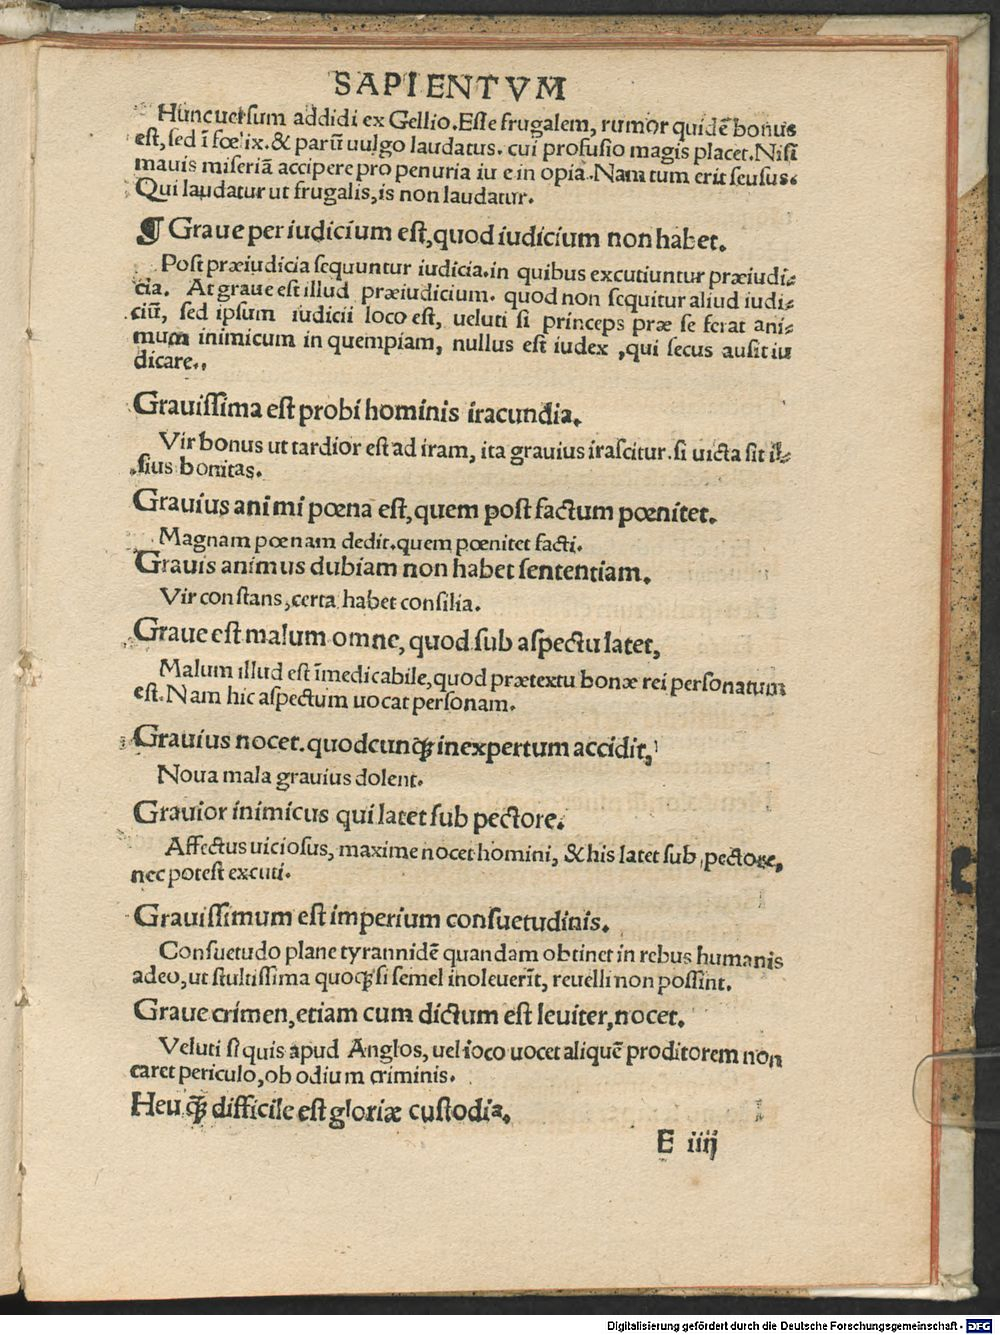 SAPIENTVM
Huncuersum addidi ex Gellio.Esse frugalem, rumor quidē bonus
est, sed ī fœlix.& parū uulgo laudatus. cui profusio magis placet.Nisi
mauis miseriā accipere pro penuria iu e in opia.Nam tum erit seusus.
Qui laudatur ut frugalis,is non laudatur.
¶ Graue per iudicium est,quod iudicium non habet.
Post præiudicia sequuntur iudicia.in quibus excutiuntur præiudi⸗
cia. At graue est illud præiudicium. quod non sequitur aliud iudi⸗
ciū, sed ipsum iudicii loco est, ueluti si princeps præ se ferat ani⸗
mum inimicum in quempiam, nullus est iudex ,qui secus ausit iu
dicare..
Grauissima est probi hominis iracundia.
Vir bonus ut tardior est ad iram, ita grauius irascitur.si uicta sit il⸗
sius bonitas.
Grauius animi pœna est,quem post factum pœnitet.
Magnam pœnam dedit.quem pœnitet facti.
Grauis animus dubiam non habet sententiam.
Vir constans,certa habet consilia.
Graue est malum omne, quod sub aspectu latet,
Malum illud est īmedicabile,quod prætextu bonæ rei personatum
est.Nam hic aspectum uocat personam.
Grauius nocet.quodcunqꝫ inexpertum accidit,
Noua mala grauius dolent.
Grauior inimicus qui latet sub pectore.
Affectus uiciosus, maxime nocet homini, & his latet sub pectore,
nec potest excuti.
Grauissimum est imperium consuetudinis.
Consuetudo plane tyrannidē quandam obtinet in rebus humanis
adeo,ut stultissima quoqꝫ si semel inoleuerīt, reuelli non possint.
Graue crimen,etiam cum dictum est leuiter,nocet.
Veluti si quis apud Anglos, uel ioco uocet aliquē proditorem non
caret periculo,ob odium criminis.
Heu qꝫ difficile est gloriæ custodia.
E iiij
Digitalisierung gefördert durch die Deutsche Forschungsgemeinschaft - DFG